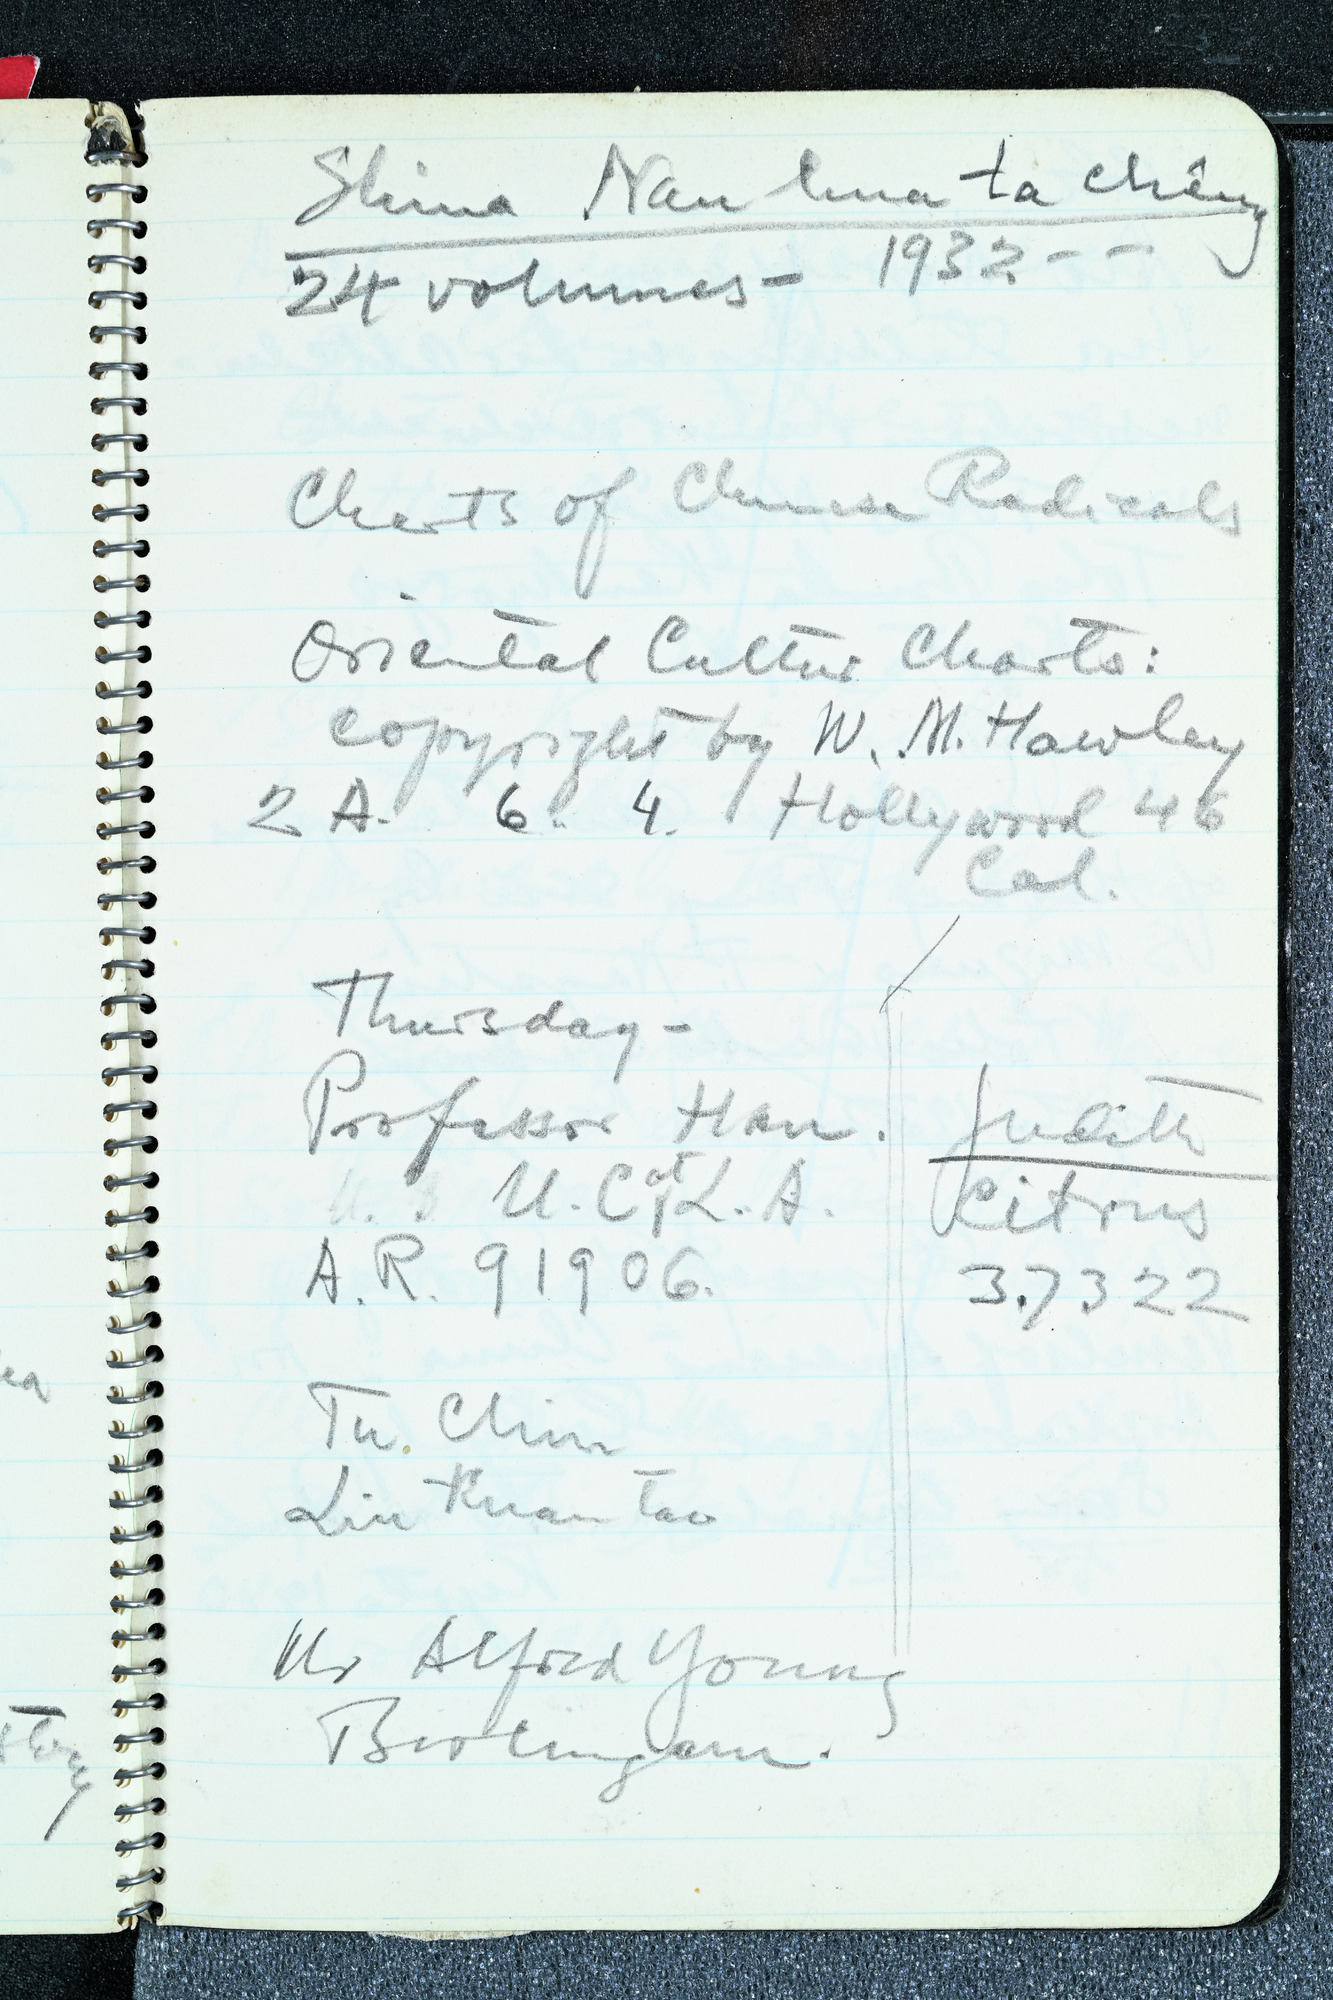 Shina Nan hua ta chêng
24 volumes - 1932 - -
Charts of Chinese Radicals
Oriental Culture Charts:
copyright by W. M. Hawley
2 A. 6. 4. Hollywood 46
Cal.
Thursday -
Professor Han.
U. C at L. A.
A. R. 91906.
Judith
Citrus
3.7322
Tu Chin
Liu Kuan Tao
Mr Alfred Young